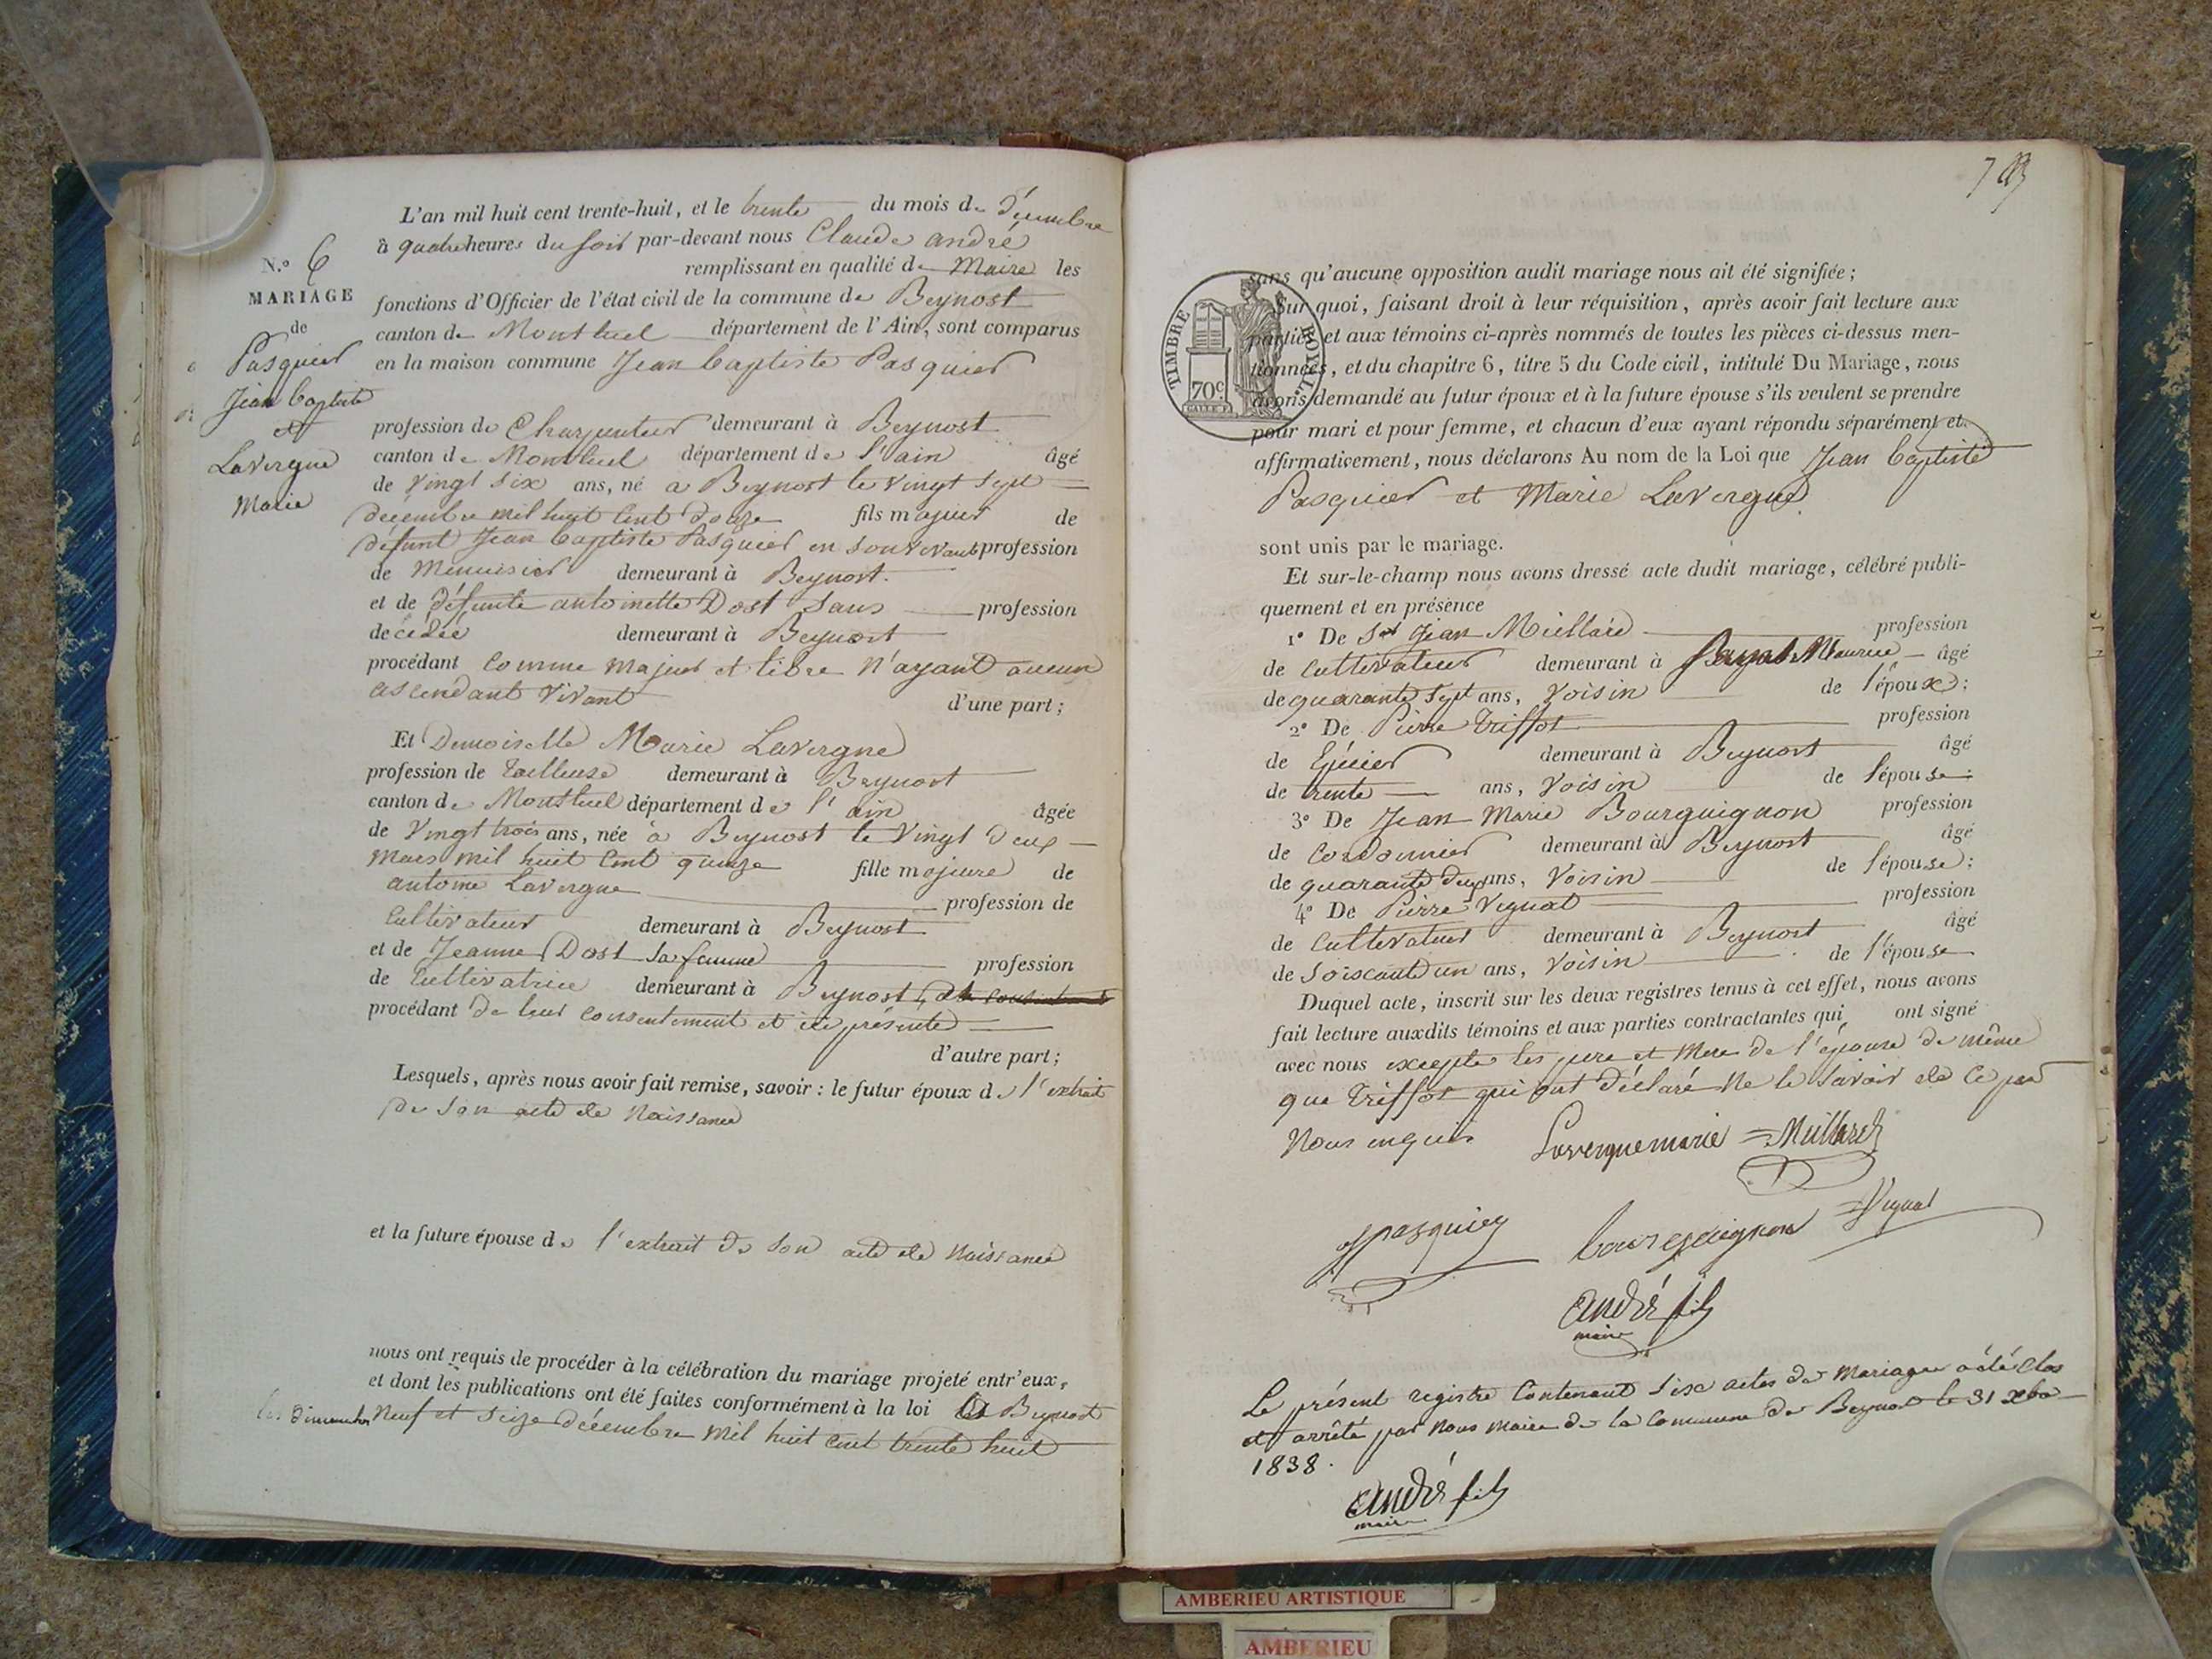 L'an mil huit cent trente-huit, et le trente du mois de Décembre
à quatre heures du soir par-devant nous Claude andré
remplissant en qualité de Maire les
fonctions d'Officier de l'état civil de la commune de Beynost
canton de Montluel département de l'Ain, sont comparus
en la maison commune Jean baptiste Pasquier
N.° 6
MARIAGE
de
Pasquier
Jean baptiste
et
Lavergne
Marie
profession de Charpentier demeurant à Beynost
canton de Montluel département de l'ain âgé
de vingt six ans, né a Beynost le vingt sept
decembre mil huit cent douze fils majeur de
défunt Jean baptiste Pasquier en son vivant profession
de Menuisier demeurant à Beynost.
et de défunte antoinette Dost sans profession
décédée demeurant à Beynost
procédant comme majeur et libre n'ayant aucun
ascendant vivant d'une part;
Et Demoiselle Marie Lavergne
profession de tailleuse demeurant à Beynost
canton de Montluel département de l'ain âgée
de vingt trois ans, née à Beynost le vingt deux
mars mil huit cent quinze fille majeure de
antoine Lavergne profession de
Cultivateur demeurant à Beynost
et de Jeanne Dost sa femme profession
de Cultivatrice demeurant à Beynost,
procédant de leur consentement et ici présents
d'autre part;
Lesquels, après nous avoir fait remise, savoir: le futur époux de l'extrait
de son acte de Naissance
et la future épouse de l'extrait de son acte de Naissance
nous ont requis de procéder à la célébration du mariage projeté entr'eux,
et dont les publications ont été faites conformément à la loi à Beynost
les dimanches Neuf et Seize décembre mil huit cent trente huit
TIMBRE ROYAL
70c
sans qu'aucune opposition audit mariage nous ait été signifiée;
Sur quoi, faisant droit à leur réquisition, après avoir fait lecture aux
parties et aux témoins ci-après nommés de toutes les pièces ci-dessus men-
tionnées, et du chapitre 6, titre 5 du Code civil, intitulé Du Mariage, nous
avons demandé au futur époux et à la future épouse s'ils veulent se prendre
pour mari et pour femme, et chacun d'eux ayant répondu séparément et
affirmativement, nous déclarons Au nom de la Loi que Jean baptiste
Pasquier et Marie Lavergne
sont unis par le mariage.
Et sur-le-champ nous avons dressé acte dudit mariage, célébré publi-
quement et en présence
1° De Jean profession
de cultivateur demeurant à Maurice âgé
de quarante sept ans, Voisin de l'époux;
2° De Pierre Triffot profession
de Epicier demeurant à Beynost âgé
de trente ans, Voisin de l'épouse;
3° De Jean Marie Bourguignon profession
de Cordonnier demeurant à Beynost âgé
de quarante deux ans, Voisin de l'épouse;
4° De Pierre Vignat profession
de Cultivateur demeurant à Beynost âgé
de Soixante un ans, Voisin de l'épouse
Duquel acte, inscrit sur les deux registres tenus à cet effet, nous avons
fait lecture auxdits témoins et aux parties contractantes qui ont signé
avec nous excepté les pere et Mere de l'épouse de même
que Triffot qui ont déclaré ne le savoir de ce par
Nous enquis
Lavergne marie
Pasquier
bourguignon
Vignat
andré fils
maire
Le présent registre Contenant Six actes de Mariages a été clos
et arrêté par Nous Maire de la Commune de Beynost le 31 Xbre
1838.
andré fils
maire
AMBERIEU ARTISTIQUE
AMBERIEU